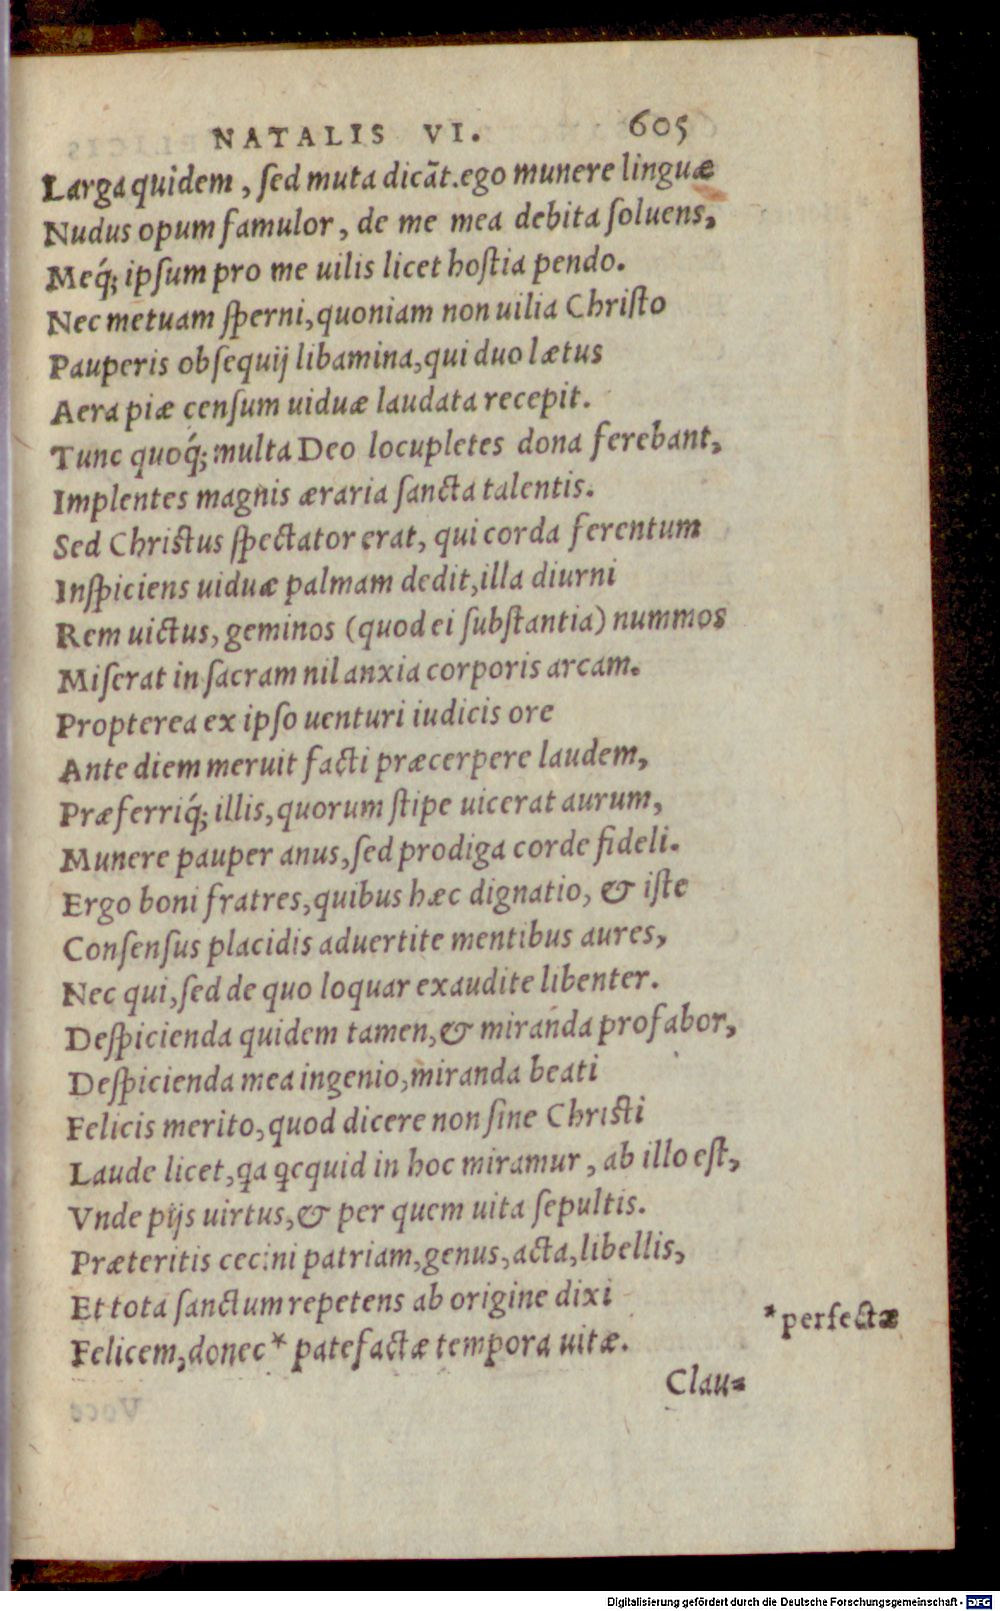 NATALIS VI. 605
Larga quidem, ſed muta dicãt. ego munere linguæ
Nudus opum famulor, de me mea debita ſoluens,
Meq́; ipſum pro me uilis licet hoſtia pendo.
Nec metuam ſperni, quoniam non uilia Chriſto
Pauperis obſequij libamina, qui duo lætus
Aera piæ cenſum uiduæ laudata recepit.
Tunc quoq́; multa Deo locupletes dona ferebant,
Implentes magnis æraria ſancta talentis.
Sed Christus ſpectator erat, qui corda ferentum
Inſpiciens uiduæ palmam dedit, illa diurni
Rem uictus, geminos (quod ei ſubſtantia) nummos
Miſerat in ſacram nil anxia corporis arcam.
Propterea ex ipſo uenturi iudicis ore
Ante diem meruit facti præcerpere laudem,
Præferriq́; illis, quorum ſtipe uicerat aurum,
Munere pauper anus, ſed prodiga corde fideli.
Ergo boni fratres, quibus hæc dignatio, & iſte
Conſenſus placidis aduertite mentibus aures,
Nec qui, ſed de quo loquar exaudite libenter.
Deſpicienda quidem tamen, & miranda profabor,
Deſpicienda mea ingenio, miranda beati
Felicis merito, quod dicere non ſine Christi
Laude licet, ꝗa ꝗcquid in hoc miramur, ab illo eſt,
Vnde pijs uirtus, & per quem uita ſepultis.
Præteritis cecini patriam, genus, acta, libellis,
Et tota ſanctum repetens ab origine dixi
Felicem, donec * patefactæ tempora uitæ.
* perfectæ
Clau=
Digitalisierung gefördert durch die Deutsche Forschungsgemeinschaft - DFG